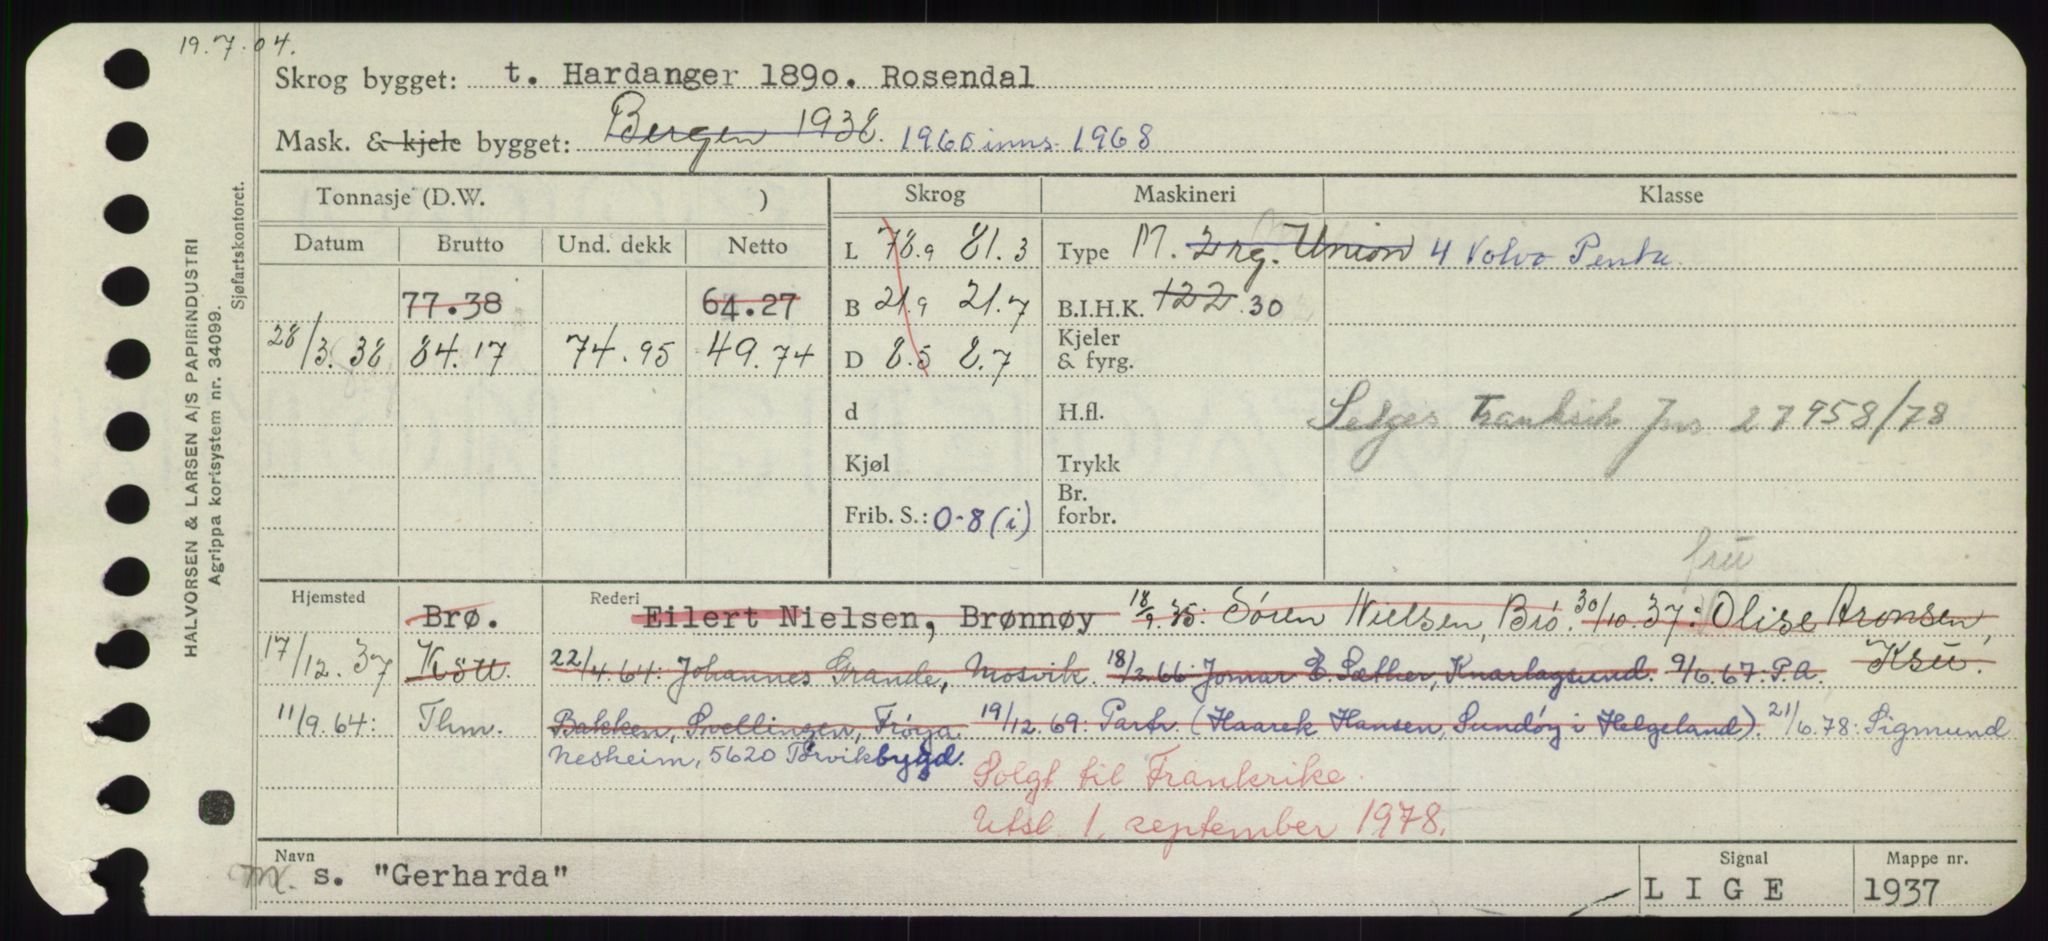 19.7.04.
Skrog bygget: t. Hardanger 1890. Rosendal
Mask. & kjele bygget: Bergen 1938. 1960 inns. 1968
HALVORSEN & LARSEN A/S PAPIRINDUSTRI
Agrippa kortsystem nr. 34099.
Sjøfartskontoret.
Tonnasje (D.W. ) Skrog Maskineri Klasse
Datum Brutto Und. dekk Netto L 78.9 81.3 Type M. 2 rg. Union 4 Volvo Penta.
77.38 64.27 B 21.9 21.7 B.I.H.K. 122 30
28/3.38 84.17 74.95 49.74 D 8.5 8.7 Kjeler & fyrg.
d H.fl. Selges Frankrik Jnr 27958/78
Kjøl Trykk
Frib. S.: 0-8 (i) Br. forbr.
fru
Hjemsted Brø. Rederi Eilert Nielsen, Brønnøy 18/9.35: Søren Nielsen, Brö. 30/10.37: Olise Aronsen,
17/12.37 Ksu. 22/4.64: Johannes Grande, Mosvik. 18/2.66: Jomar E. Sæther, Knarlagsund. 9/6.67: P.A. Ksu.
11/9.64: Thm. Bakken, Svellingen, Frøya 19/12.69: Partr. (Haarek Hansen, Sundøy i Helgeland). 21/6.78: Sigmund
Nesheim, 5620 Tørvikbygd. Solgt til Frankrike.
Utsl. 1. september 1978.
Navn Signal Mappe nr.
mx. s. "Gerharda" LIGE 1937